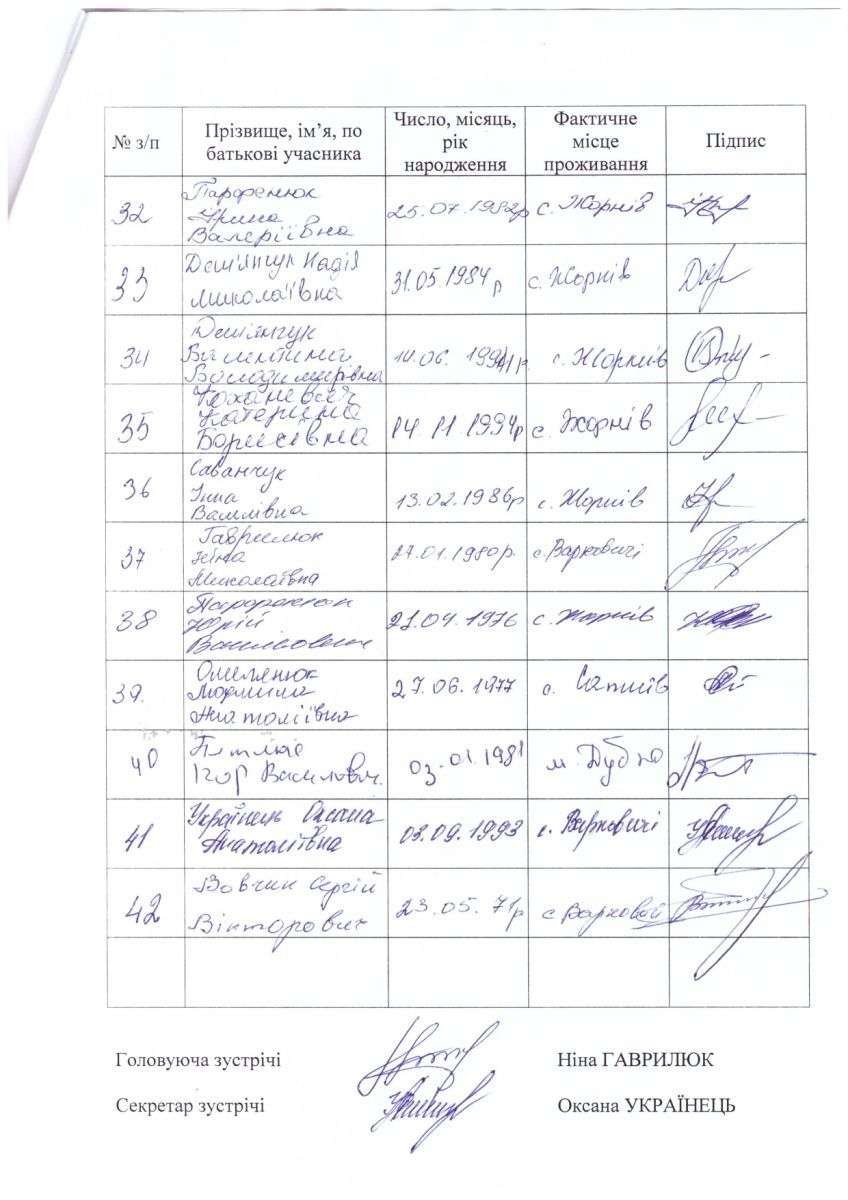 № з/п
Прізвище, ім’я, по
батькові учасника
Число, місяць,
рік
народження
Фактичне
місце
проживання
Підпис
32
Парфенюк
Ірина
Валеріївна
25.07.1982р
с. Жорнів
33
Дем'янчук Надія
Миколаївна
31.05.1984р
с. Жорнів
34
Дем'янчук
Валентина
Володимирівна
с. Жорнів
35
Катерина
Борисівна
14 11 1994р
с. Жорнів
36
Саванчук
Інна
Василівна
13.02.1986р
с. Жорнів
37
Гаврилюк
Ніна
Миколаївна
27.01.1980р.
с. Варковичі
38
Парфенюк
Юрій
Васильович
21.04.1976
с. Жорнів
39.
Омелянюк
Людмила
Анатоліївна
27.06.1977
с.
40
Ігор Василович.
03.01.1981
м. Дубно
41
Українець Оксана
Анатоліївна
03.09.1993
с. Варковичі
42
Вовчик Сергій
Вікторович
23.05.71р
с Варковичі
Головуюча зустрічі
Ніна ГАВРИЛЮК
Секретар зустрічі
Оксана УКРАЇНЕЦЬ